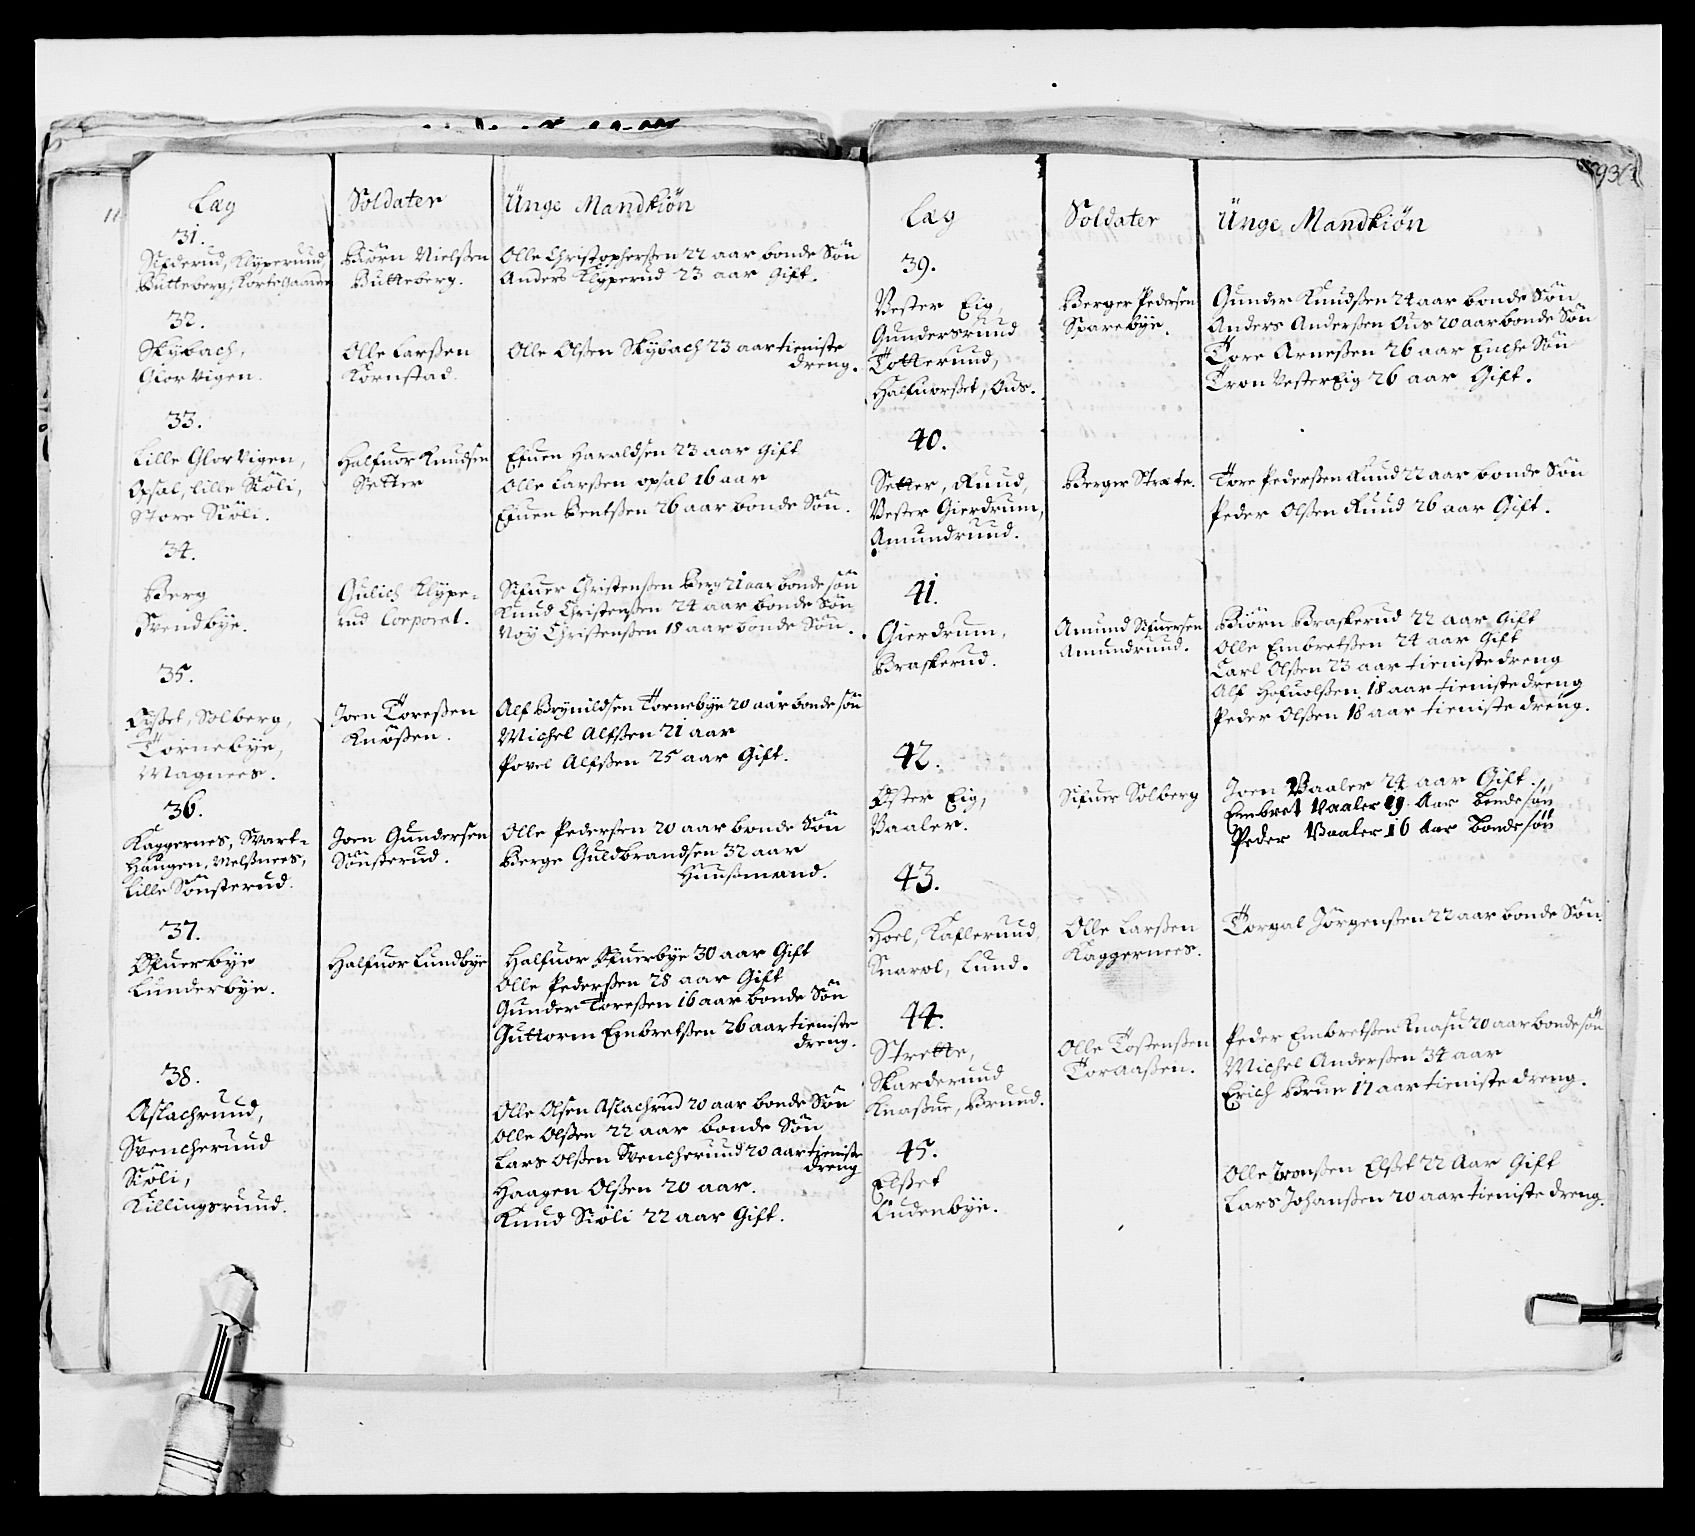 11
Læg
Soldater
Ünge Mandkiön
31.
Sifderud, Klÿperund
Butteberg, Korte Gaarden
Biörn Nielßen
Butteberg.
Olle Christopherßen 22 aar bonde Sön
Anders Klÿperud 23 aar Gift.
32.
Skÿbach,
Glorvigen.
Olle Larßen
Kornstad.
Olle Olßen Skÿbach 23 aar tieniste
dreng.
33.
Lille Glorvigen,
Opsal, Lille Siöli,
Store Siöli.
Halfuor Knudsen
Setter
Efuen Haraldsen 23 aar Gift
Olle Larßen opsal 16 aar
Efuen Bentßen 26 aar bonde Sön.
34.
Berg
Svendbÿe.
Gulich Klÿpe-
rud Corporal.
Sifuer Christenßen Berg 21 aar bonde sön
Knud Christenßen 24 aar bonde Sön
Christenßen 18 aar bonde Sön.
35.
Solberg,
Tornebÿe,
Magnees.
Joen Toreßen
Knößen.
Alf Brÿnildsen Tornebÿe 20 aar bonde sön
Michel Alfßen 21 aar
Povel Alfßen 25 aar Gift.
36.
Kaggernes, Svart-
Haugen, Melßnees,
Lille Sönsterud.
Joen Gundersen
Sönsterud.
Olle Pederßen 20 aar bonde Sön
Berge Guldbrandsen 32 aar
Huußmand.
37.
Öfuerbÿe
Lunderbÿe.
Halfuor Lundbÿe
Halfuor Öfuerbÿe 30 aar Gift
Olle Pederßen 28 aar Gift
Gunder Toreßen 16 aar bonde Sön
Guttorm Embretßen 26 aar tieniste
dreng.
38.
Aslachruud,
Svencheruud
Siöli,
Killingsruud.
Olle Olsen Aslachrud 20 aar bonde Sön
Olle Olßen 22 aar bonde Sön
Lars Olßen Svencheruud 20 aar tieniste
dreng
Haagen Olßen 20 aar.
Knud Siöli 22 aar Gift.
Læg
Soldater
Ünge Mandkiön
39.
Vester Eig,
Gundersruud
Totteruud,
Halfuorset, Ous.
Berger Pedersen
Sparebÿe.
Gunder Knudßen 24 aar bonde Sön
Anders Anderßen Ous 20 aar bonde Sön
Tore Arneßen 26 aar Enche Sön
Tron Vester Eig 26 aar Gift.
40.
Setter, Ruud,
Vester Gierdrum,
Amundruud.
Berger Stræte.
Tore Pederßen Ruud 22 aar bonde Sön
Peder Olßen Ruud 26 aar Gift.
41.
Gierdrum,
Braskerud.
Amund Sifuersen
Amundruud.
Biörn Braskerud 22 aar Gift
Olle Embretßen 24 aar Gift
Carl Olßen 23 aar tieniste dreng
Alf 18 aar tieniste dreng
Peder Olßen 18 aar tieniste dreng.
42.
Öster Eig,
Vaaler.
Sifuer Solberg
Joen Vaaler 24 aar Gift.
Embret Vaaler 19 Aar bonde sön
Peder Vaaler 16 Aar bonde sön
43.
Hoel, Kafleruud,
Snarol, Lund.
Olle Larßen
Kaggernees.
Torgal Jörgenßen 22 aar bonde Sön.
44.
Strette,
Skarderuud
Knaßue, Bruud.
Olle Tostenßen
Toraaßen.
Peder Embretßen Knasu 20 aar bonde sön
Michel Anderßen 34 aar
Erich Bruu 17 aar tieniste dreng.
45.
Elßet
Ludenbÿe.
Olle Elßet 22 Aar Gift
Lars Johanßen 20 aar tieniste dreng.